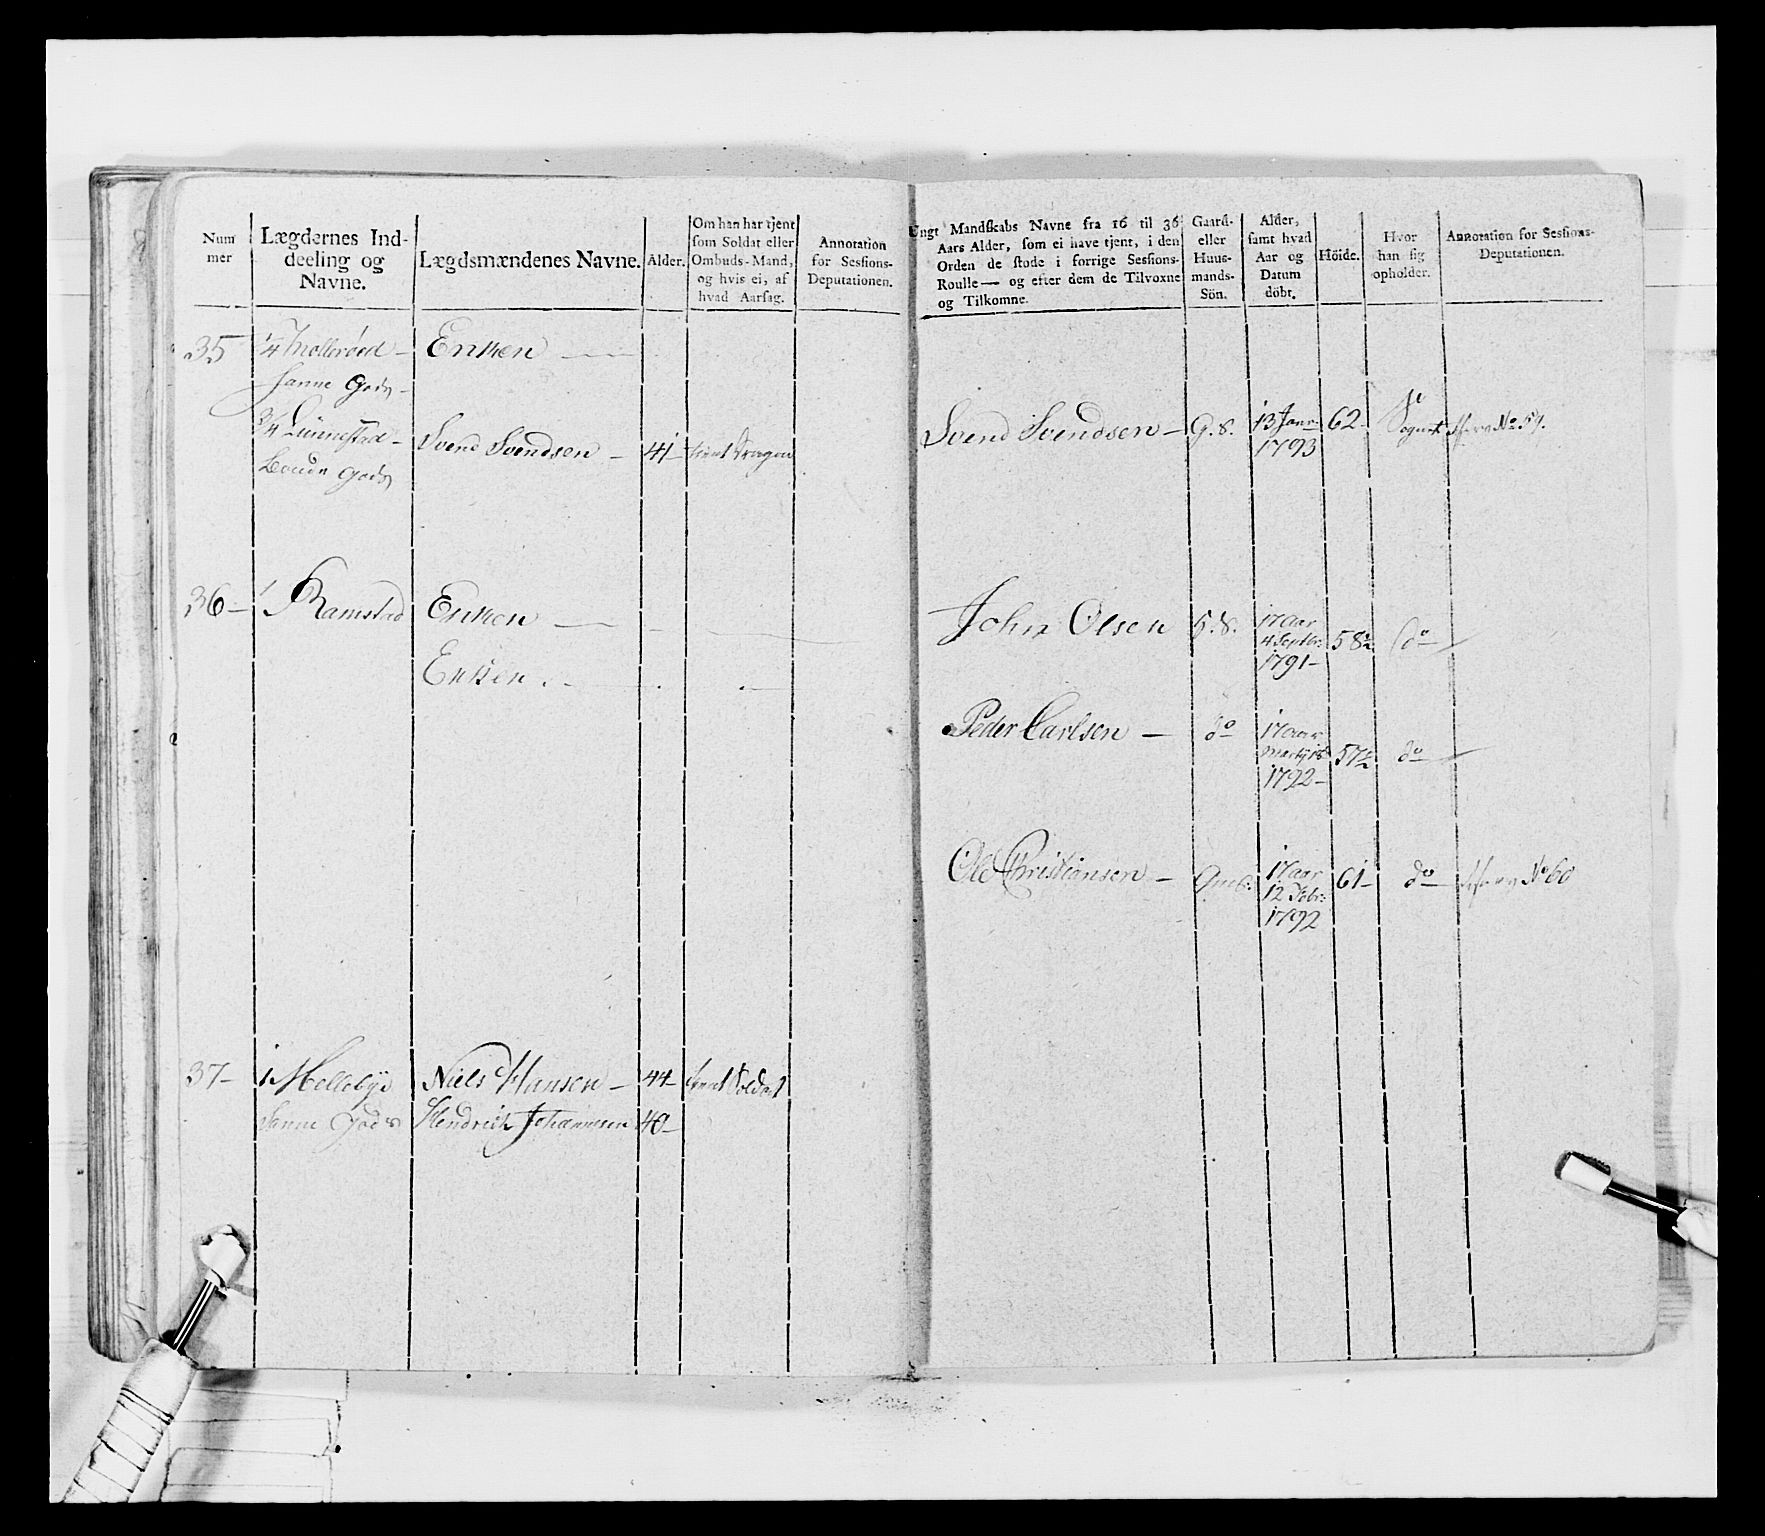 Num
mer
Lægdernes Ind-
deeling og
Navne.
Lægdsmændenes Navne.
Alder.
Om han har tjent
som Soldat eller
Ombuds-Mand,
og hvis ei, af
hvad Aarsag.
Annotation
for Sessions-
Deputationen.
Ungt Mandskabs Navne fra 16 til 36
Aars Alder, som ei have tjent, i den
Orden de stode i forrige Sessions-
Roulle— og efter dem de Tilvoxne
og Tilkomne.
Gaard-
eller
Huus-
mands-
Sön.
Alder,
samt hvad
Aar og
Datum
döbt.
Höide.
Hvor
han sig
opholder.
Annotation for Sessions-
Deputationen.
35
1/4 Molleröed –
Enken —
Sanne Gods –
3/4 Linnestad –
Svend Svendsen – 41 – tient Dragon
Gods
Svend Svendsen – G. S.
13 Janr
1793
62 –
Sognet
No 59.
36 –
1 Ramstad
Enken —
Enken . –
John Olsen
G. S.
17 Aar
4 Septbr:
1791 –
58½
do
Peder Carlsen –
do
17 Aar
1792 –
57½
do
Ole Christiansen –
17 Aar
12 Febr:
1792
61 –
do
No 60
37 –
1 Mellebye
Niels Hansen – 44 – tient Soldat
Sanne Gods
Hendrich Johannesen 40 –